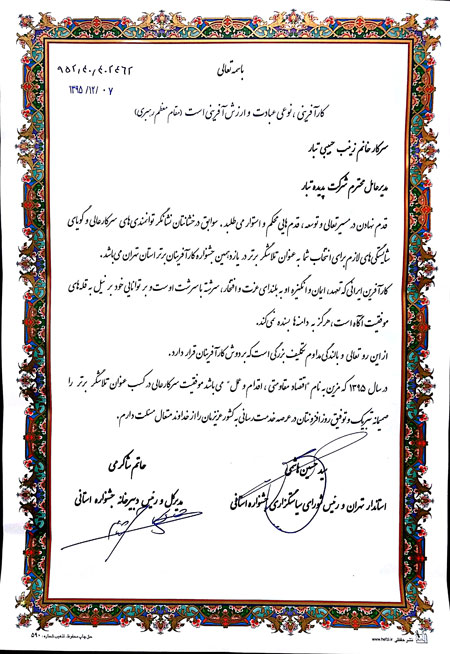 باسمه تعالی
۹۵۲/۶۰/۶۰۲۴۶۲
۱۳۹۵/۱۲/۰۷
کارآفرینی ، نوعی عبادت و ارزش آفرینی است (مقام معظم رهبری)
سرکار خانم زینب حبیبی تبار
مدیرعامل محترم شرکت پدیده تبار
قدم نهادن در مسیر تعالی و توسعه ، قدم هایی محکم و استوار می طلبد . سوابق درخشانتان نشانگر توانمندی های سرکارعالی و گویای
شایستگی های لازم برای انتخاب شما به عنوان تلاشگر برتر در یازدهمین جشنواره کارآفرینان برتر استان تهران می باشد.
کارآفرین ایرانی که تعهد، ایمان و انگیزه او به بلندای عزت و افتخار، سرشته با سرشت اوست و بر توانایی خود بر نیل به قله های
موفقیت آگاه است ، هرگز به دامنه ها بسنده نمی کند.
از این رو تعالی و بالندگی مداوم تکلیف بزرگی است که بر دوش کارآفرینان قرار دارد.
در سال ۱۳۹۵ که مزین به نام "اقتصاد مقاومتی ، اقدام و عمل" می باشد موفقیت سرکارعالی در کسب عنوان تلاشگر برتر را
صمیمانه تبریک و توفیق روز افزونتان در عرصه خدمت رسانی به کشور عزیزمان را از خداوند متعال مسئلت دارم.
سید حسین هاشمی
استاندار تهران و رئیس شورای سیاستگزاری جشنواره استانی
حاتم شاکرمی
مدیرکل و رئیس دبیرخانه جشنواره استانی
حق چاپ محفوظ، تذهیب شماره: ۵۹۰
نشر حافظی www.hafiz.ir